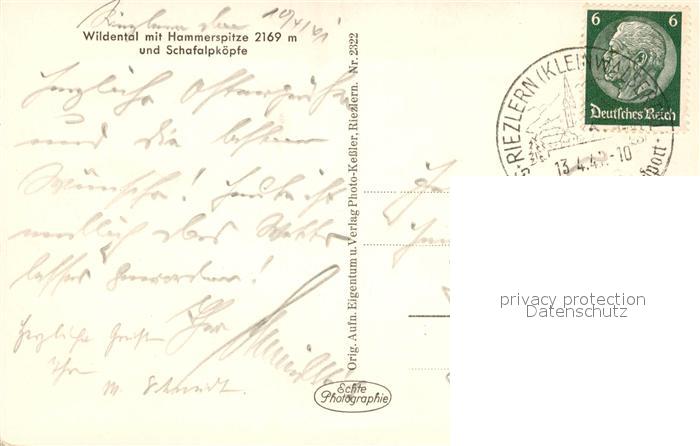 Riezlern den 10/4/41
Wildental mit Hammerspitze 2169 m
und Schafalpköpfe
Herzliche Ostergrüße
und die besten
Wünsche! Heute ist
endlich das Wetter
besser geworden!
Ihr
Herzliche Grüße
Ihr
M. Schmidt.
Orig. Aufn. Eigentum u. Verlag Photo-Keßler, Riezlern. Nr. 2322
Echte
Photographie
6 6
Deutsches Reich
RIEZLERN (KLEINWALSERTAL)
13.4.41.-10
privacy protection
Datenschutz